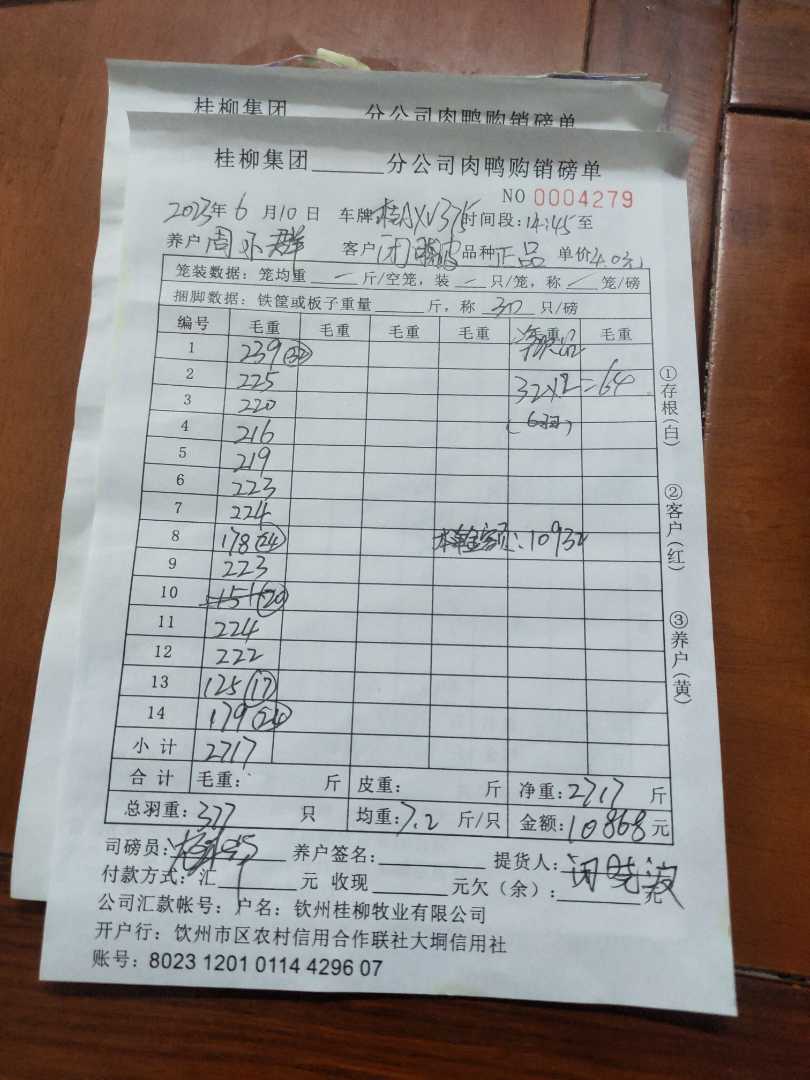 桂柳集团 分公司肉鸭购销磅单
桂柳集团______分公司肉鸭购销磅单
NO 0004279
2023年6月10日 车牌桂AXV375时间段:14:45至
养户周 群 客户 品种正品 单价4.0元
笼装数据:笼均重 — 斤/空笼,装 — 只/笼,称 — 笼/磅
捆脚数据:铁筐或板子重量______斤,称 30 只/磅
编号 毛重 毛重 毛重 毛重 毛重 毛重
1 239 (32)
2 225 32×2=64
3 220
4 216
5 219
6 223
7 224
8 178 (24) 10932
9 223
10 151 (20)
11 224
12 222
13 125 (17)
14 179 (24)
小计 2717
合计 毛重: 斤 皮重: 斤 净重:2717 斤
总羽重:377 只 均重:7.2 斤/只 金额:10868元
司磅员: 养户签名:______ 提货人:闭晓波
付款方式:汇______元 收现______元欠(余):______元
公司汇款帐号:户名:钦州桂柳牧业有限公司
开户行:饮州市区农村信用合作联社大垌信用社
账号:8023 1201 0114 4296 07
①存根(白)
②客户(红)
③养户(黄)